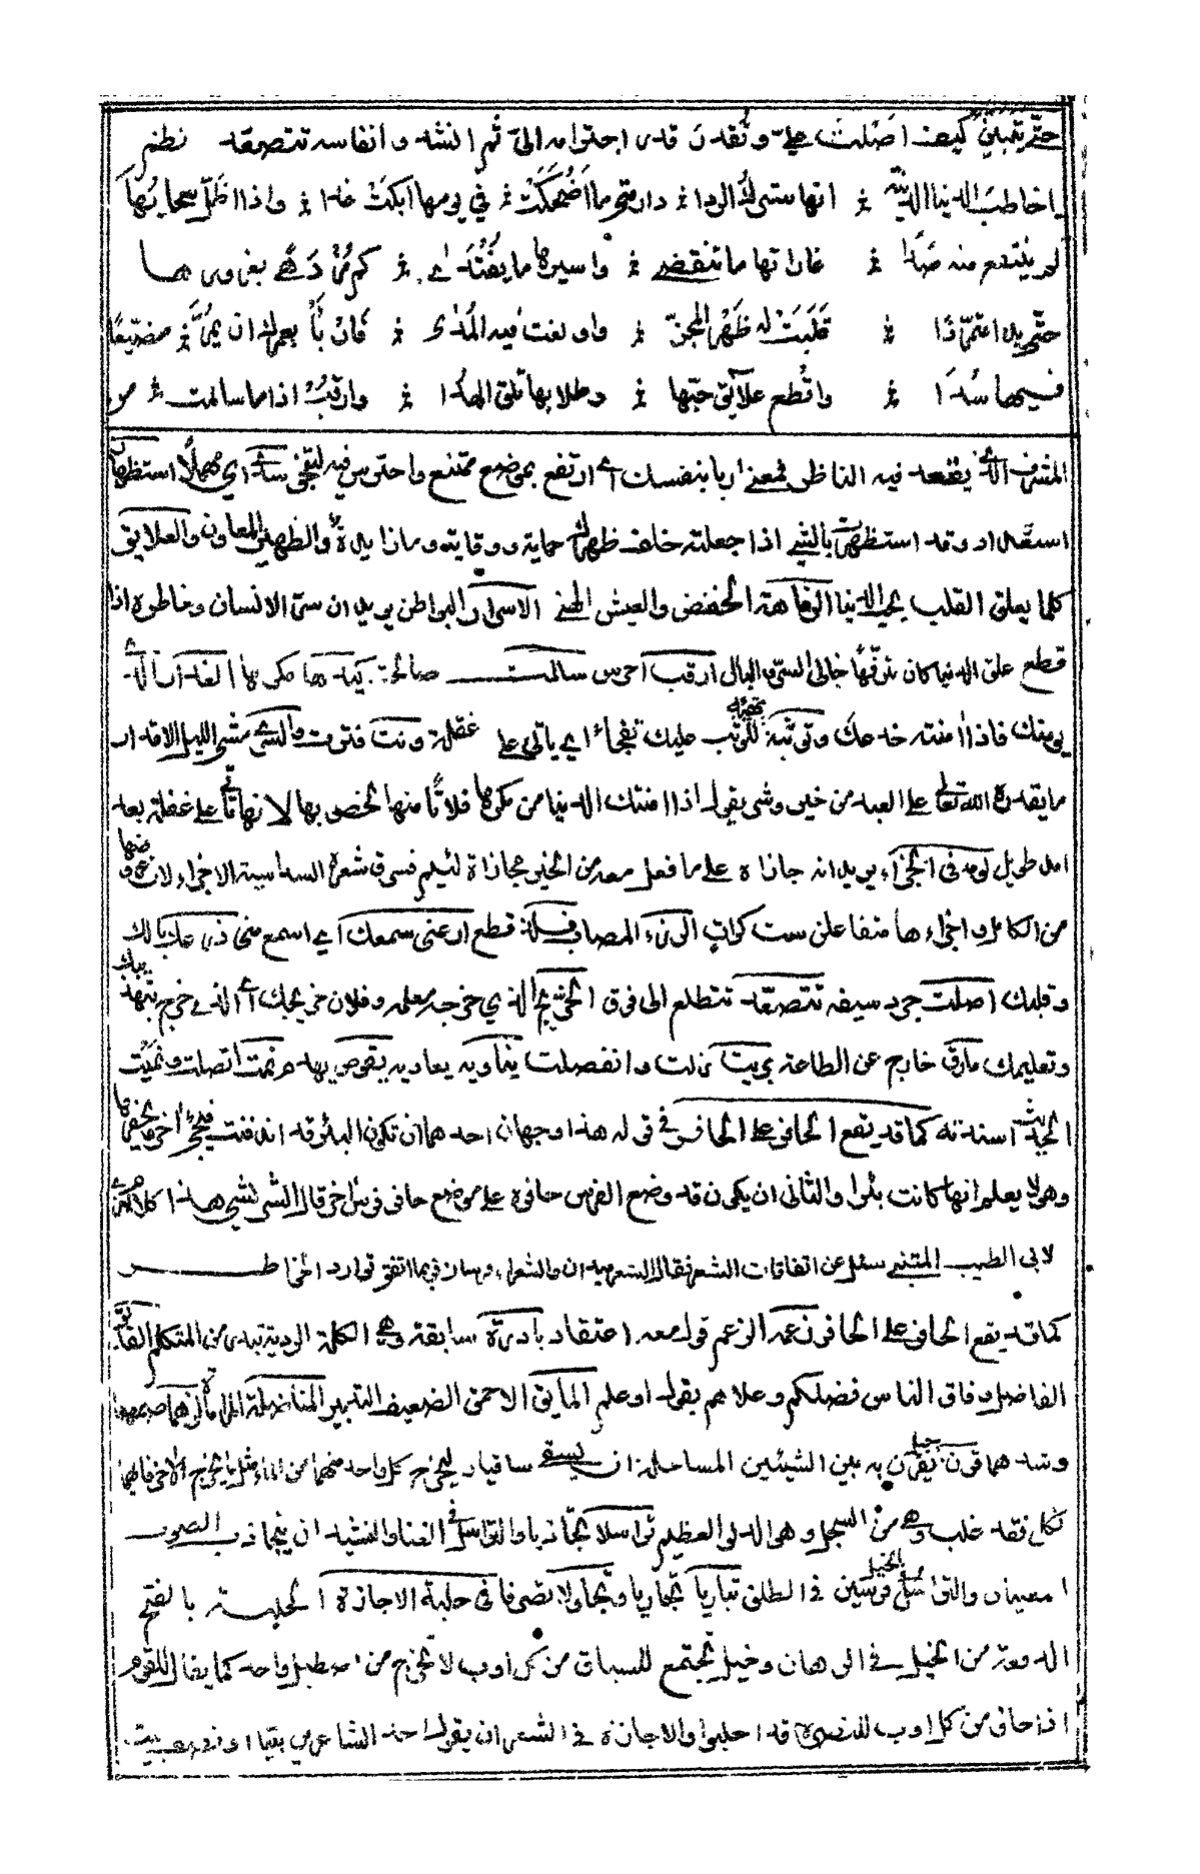 حتّى تتبيّنَ كيف اَصْلَتَ عليّ وتُقدرَ قدر اجتوامه اليّ ثم انشد وانفاسه تتصعّد نظم
ياخاطبَ الدنيا الدنيّة انها شرك الردا دار متى ما اَضْحَكَتْ في يومها اَبكَتْ غدا واذا اظلّ سحابُها
لم ينتقع منه صدًا غاراتها ما تنقضي واسيرها ما يُفتَدى كم مُزْدَهًى بغرورها
حتّى بدا متمرّدًا قَلَبَتْ له ظَهْرَ المِجَنّ واولغت فيه المُدى فَارْبَأْ بعمرك ان يمُرّ مضيّعًا
فيها سُدًا واقطع علائق حبّها وطلابها تلق الهدا وارقُبْ اذا ما سالمت من
المشرف الذي يقعد فيه الناظر فمعنى اربا بنفسك اي ارتفع بموضع ممتنع واحترس فيه لتنجي سدى اي مهملا استظهار
استعداد وقد استظهرت بالشيء اذا جعلته خلف ظهرك حماية ووقاية والظهير المعاون والعلايق
كلما يعلق القلب بحب الدنيا الرفاهة الخفض والعيش الهني الاسرار البواطن يريد ان سر الانسان وخاطره اذا
قطع علق الدنيا كان مترفّهًا خالي السر والبال ارقب احرس سالمت صالحت كيدها مكرها الغدار الذي
يومنك فاذا امنته خدعك وتوثّبه للوثب عليك تفجأ اي ياتي على غفلة ونت فترت والسرى مشي الليل الاقدار
ما يقدره الله تعالى على العبد من خير وشر يقول اذا امنتك الدنيا من مكرها فلا تأمنها لخصوبها لانها تاتي على غفلة بعد
امد طويل لومه في الجزاء يريد انه جازاه على ما فعل معه من الخير مجازاة لئيم فسرق شعره السداسية الاجزاء لانه
من الكامل واجزاءها متفاعلن ست كراتٍ الرزء المصاب فلذ قطع ارعني سمعك اي اسمع مني ذرعك بالك
وقلبك اصلت جرد سيفه تتصعّد تتطلع الى فوق الخرّيج الذي خرجه معلمه وفلان خريجك اي الذي خرج بتهذيبك
وتعليمك مارق خارج عن الطاعة بريت نزلت وانفصلت يناويه يعاديه يقوض يهدم نمت اتصلت ونميت
الحديث اسندته كما قد يقع الحافر على الحافر في قوله هذا وجهان احدهما ان تكون البئر قد اندفنت فيجئ اخر يحفرها
وهو لا يعلم انها كانت بئرا والثاني ان يكون قد وضع الفرس حافره على موضع حافر فرس اخر قال الشريشي هذا كلام
لابي الطيب المتنبي سئل عن اتفاقات الشعر فقال الشعر ميدان والشعراء فرسان فربما اتفق توارد الخاطر
كما قد يقع الحافر على الحافر زعمه الزعم قول معه اعتقاد بادرة سابقة وهي الكلمة الردية تبدر من المتكلم الفائق
الفاضل وفاق الناس فضلهم وعلاهم بقول او علم المايق الاحمق الضعيف التدبير المناضلة المراماة
وشدهما قرن حبل يقرن به بين الشيئين المساجلة ان يستقي ساقيان ليخرج كل واحد منهما من الماء مثل ما يخرج الاخر فايهما
نكل فقد غلب وهي من السجل وهو الدلو العظيم تراسلا تجاذبا والتراسل في الغنا والنشيد ان يتجاذب الصوت
مغنيان والتراسل بالخيل فرسين في الطلق تباريا تجاريا وتجاولا تصرفا في حلبة الاجازة الحلبة بالفتح
الدفعة من الخيل في الرهان وخيل تجتمع للسباق من كل اوب لا تخرج من اصطبل واحد كما يقال للقوم
اذا جاؤ من كل اوب للنصرة قد احلبوا والاجازة في الشعر ان يقول احد الشاعرين بيتا او نصف بيت